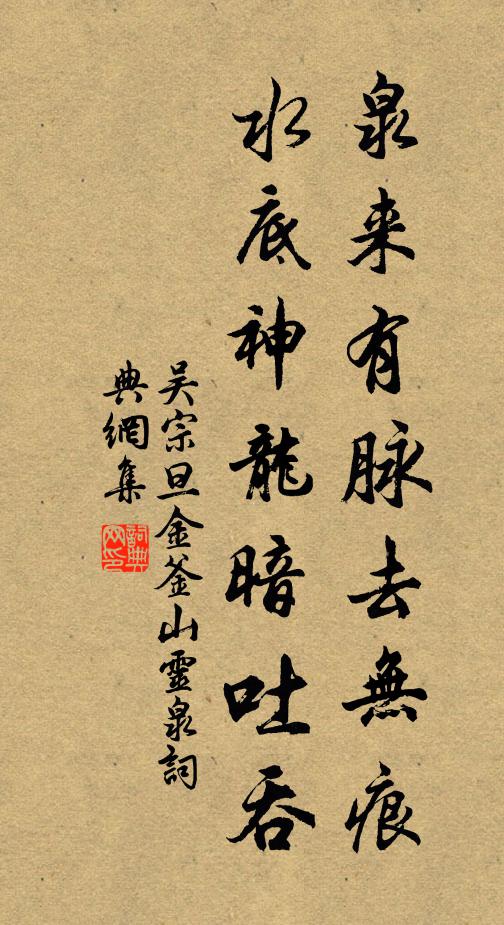 泉来有脉去無痕
水底神龍暗吐吞
吴宗旦金釜山靈泉詞
典網集
詞典网印